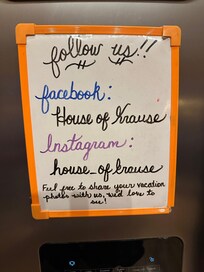 follow us!!
facebook:
House of Krause
Instagram:
house_of_krause
Feel free to share your vacation
photos with us, we'd love to
see!